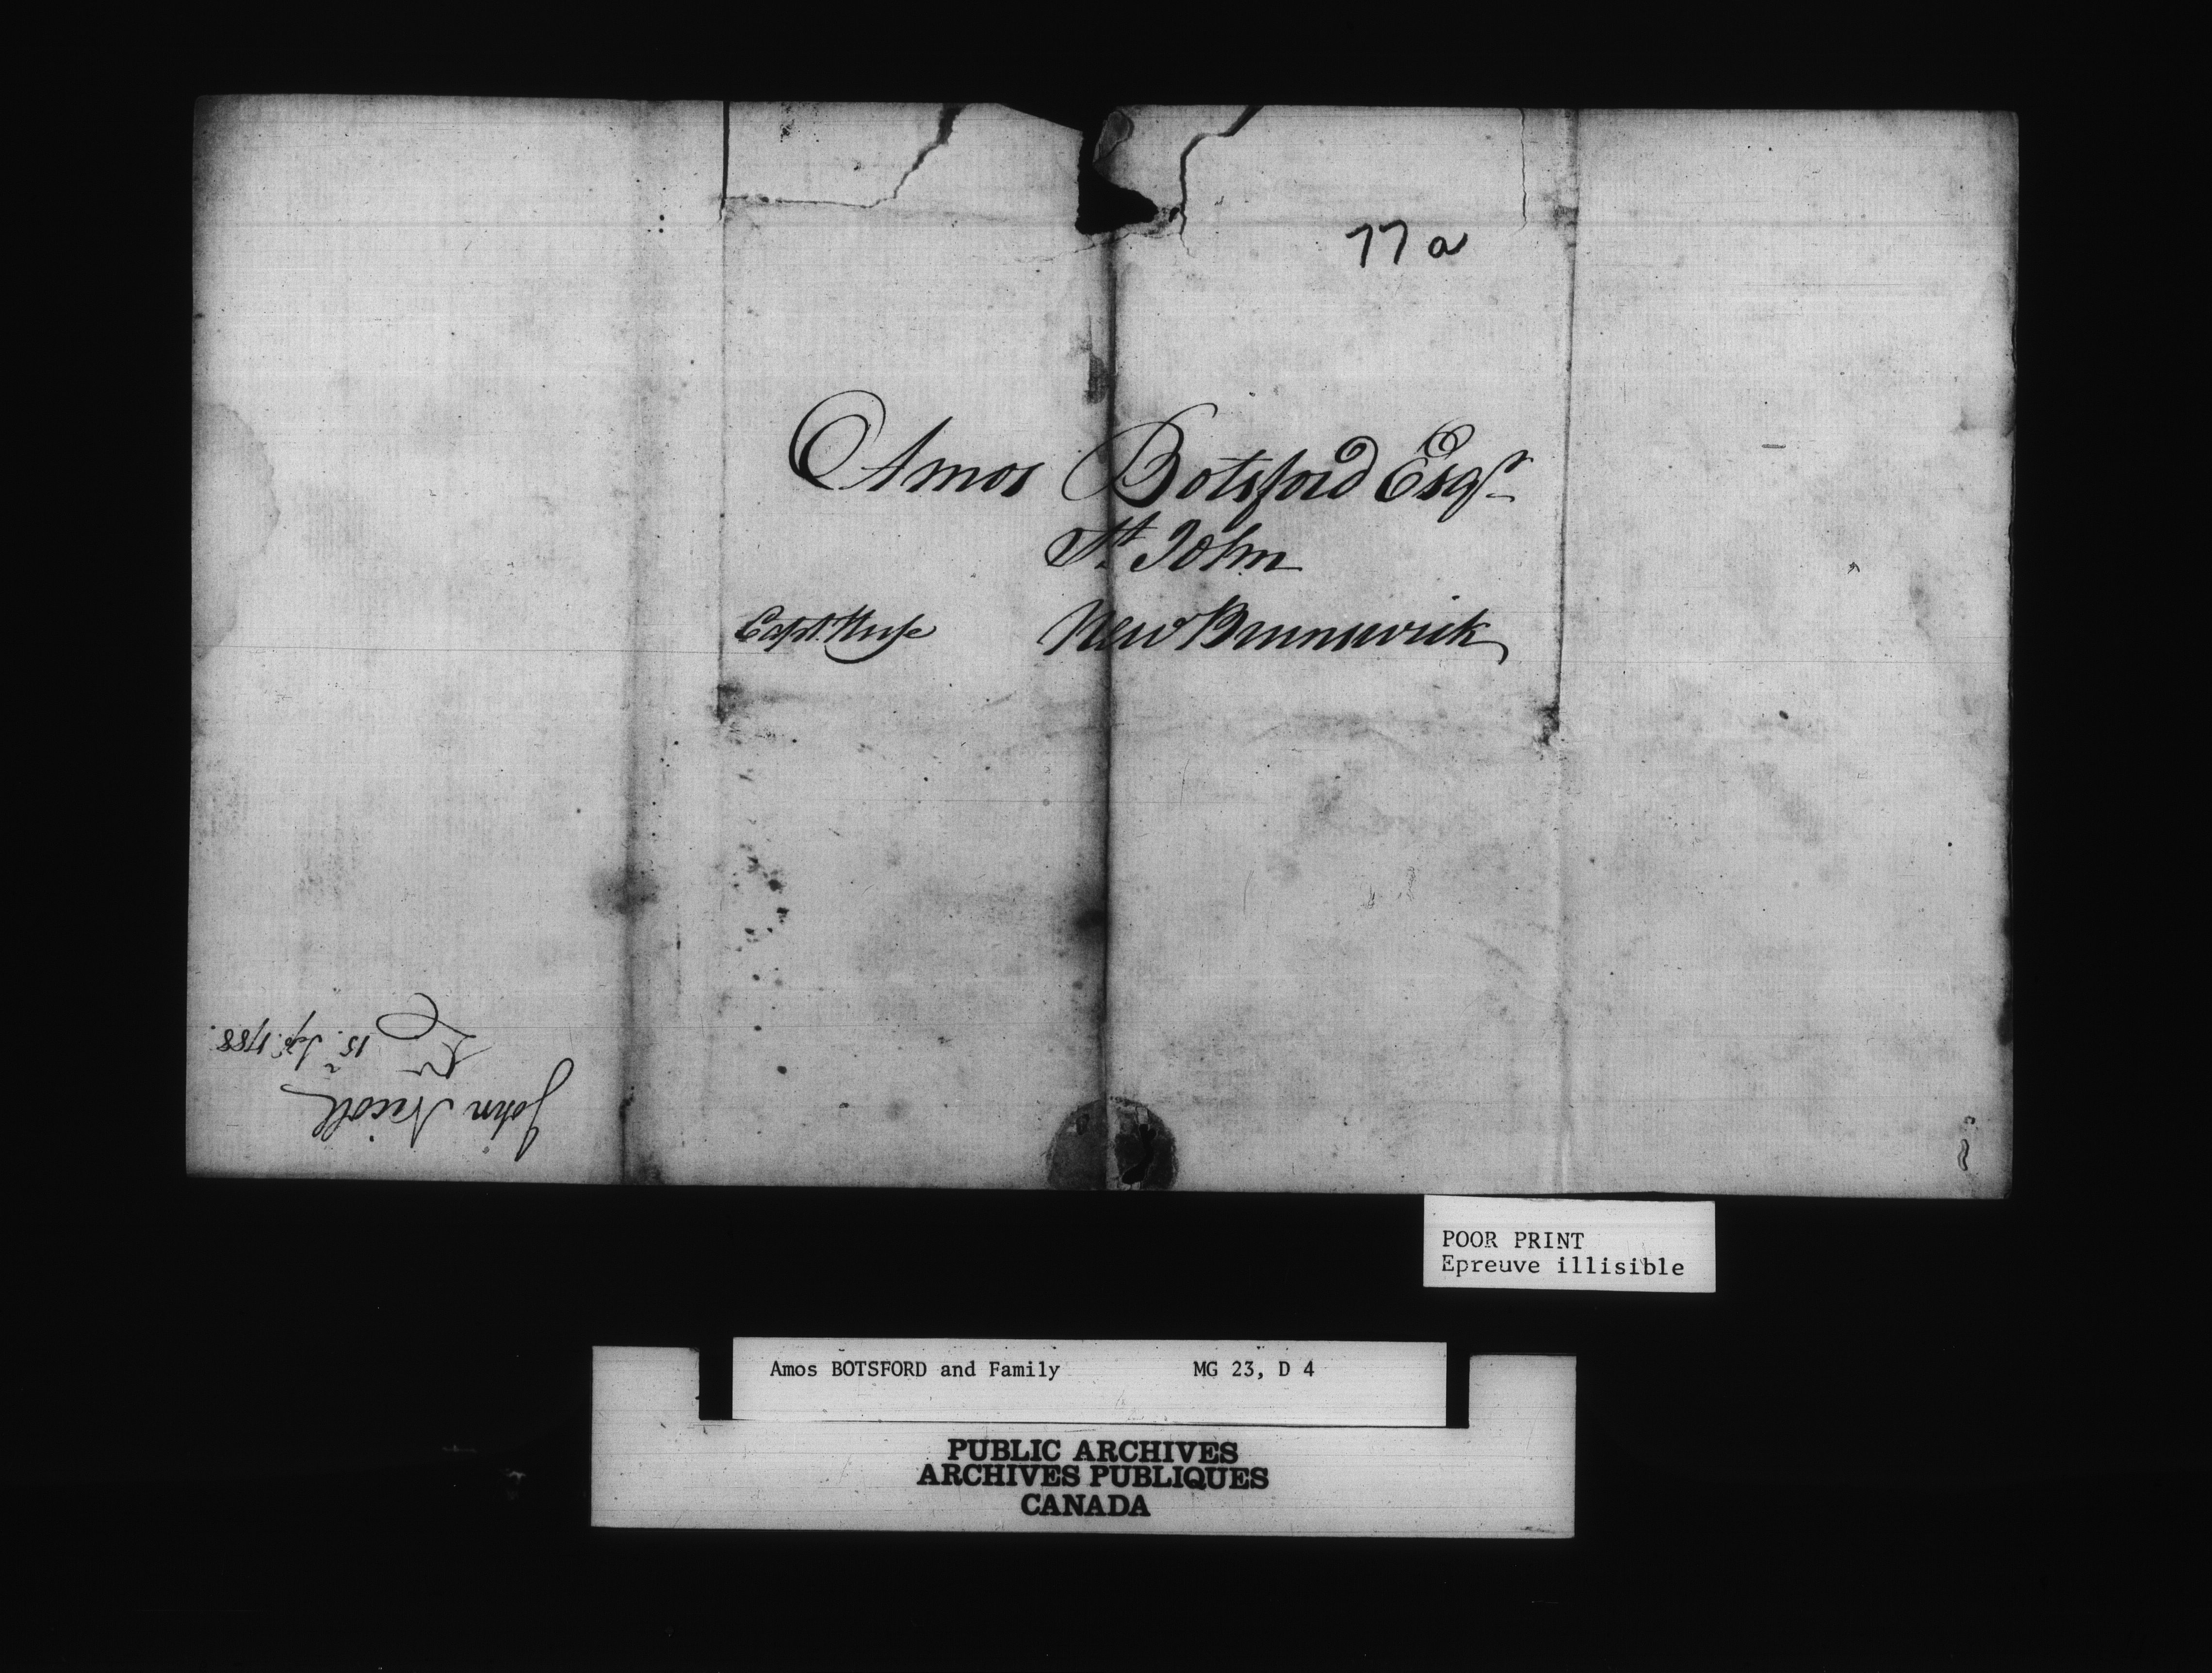 77a
Amos Botsford Esqr
St John
Capt. New Brunswick
John Nicoll
15. Sept. 1788.
POOR PRINT
Epreuve illisible
Amos BOTSFORD and Family MG 23, D 4
PUBLIC ARCHIVES
ARCHIVES PUBLIQUES
CANADA